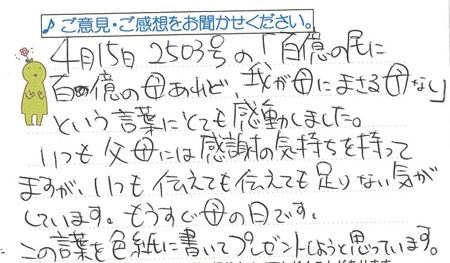 ♪ご意見・ご感想をお聞かせください。
4月15日 2503号の「百億の民に
百億の母あれど、我が母にまさる母なし」
という言葉にとても感動しました。
いつも父母には感謝の気持ちを持って
ますが、いつも伝えても伝えても足りない気が
しています。もうすぐ母の日です。
この言葉を色紙に書いてプレゼントしようと思っています。